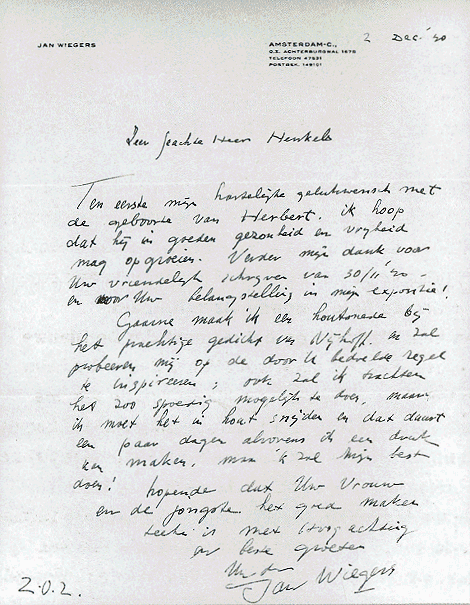 JAN WIEGERS
AMSTERDAM-C.,
O.Z. ACHTERBURGWAL 157B
TELEFOON 47531
POSTREK. 149101
2 Dec. '40
Zeer geachte Heer Henkels
Ten eerste mijn hartelijke gelukwensch met
de geboorte van Herbert, ik hoop
dat hij in goeden gezonheid en vrijheid
mag opgroeien. Verder mijn dank voor
Uw vriendelijk schrijven van 30/11 '40 -
en voor Uw belangstelling in mijn expositie!
Gaarne maak ik een houtsnede bij
het prachtige gedicht van Nijhoff en zal
probeeren mij op de door U bedoelde regel
te inspireeren; ook zal ik trachten
het zoo spoedig mogelijk te doen, maar
ik moet het in hout snijden en dat duurt
een paar dagen alvorens ik een druk
kan maken, maar 'k zal mijn best
doen! hopende dat Uw Vrouw
en de jongste het goed maken
teeken ik met Hoogachting
en beste groeten
Uw
Jan Wiegers
Z.O.Z.